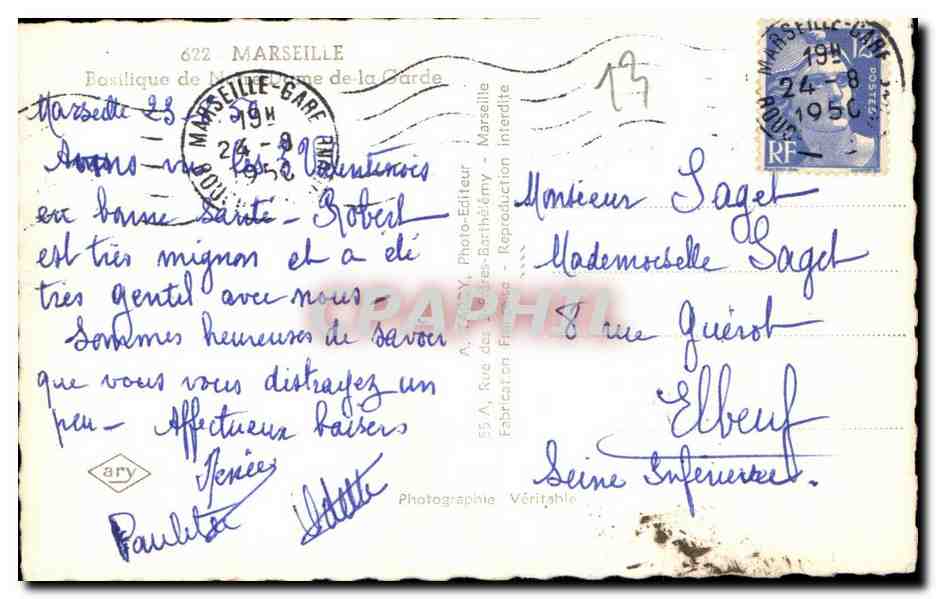 622 MARSEILLE
Basilique de Notre-Dame de la Garde
Marseille 23
Avons vu les 3 Valentinois
en bonne santé - Robert
est très mignon et a été
très gentil avec nous -
Sommes heureuses de savoir
que vous vous distrayez un
peu - Affectueux baisers
Renée
Paulette Odette
ary
MARSEILLE-GARE
19H
24-8
1950
A. ARY, Photo-Editeur
55 A, Rue des -Barthélémy - Marseille
Fabrication Française - Reproduction interdite
Photographie Véritable
CPAPHIL
13
MARSEILLE-GARE
19H
24-8
1950
POSTES
RF
Monsieur Saget
Mademoiselle Saget
8 rue Guérot
Elbeuf
Seine Inférieure.